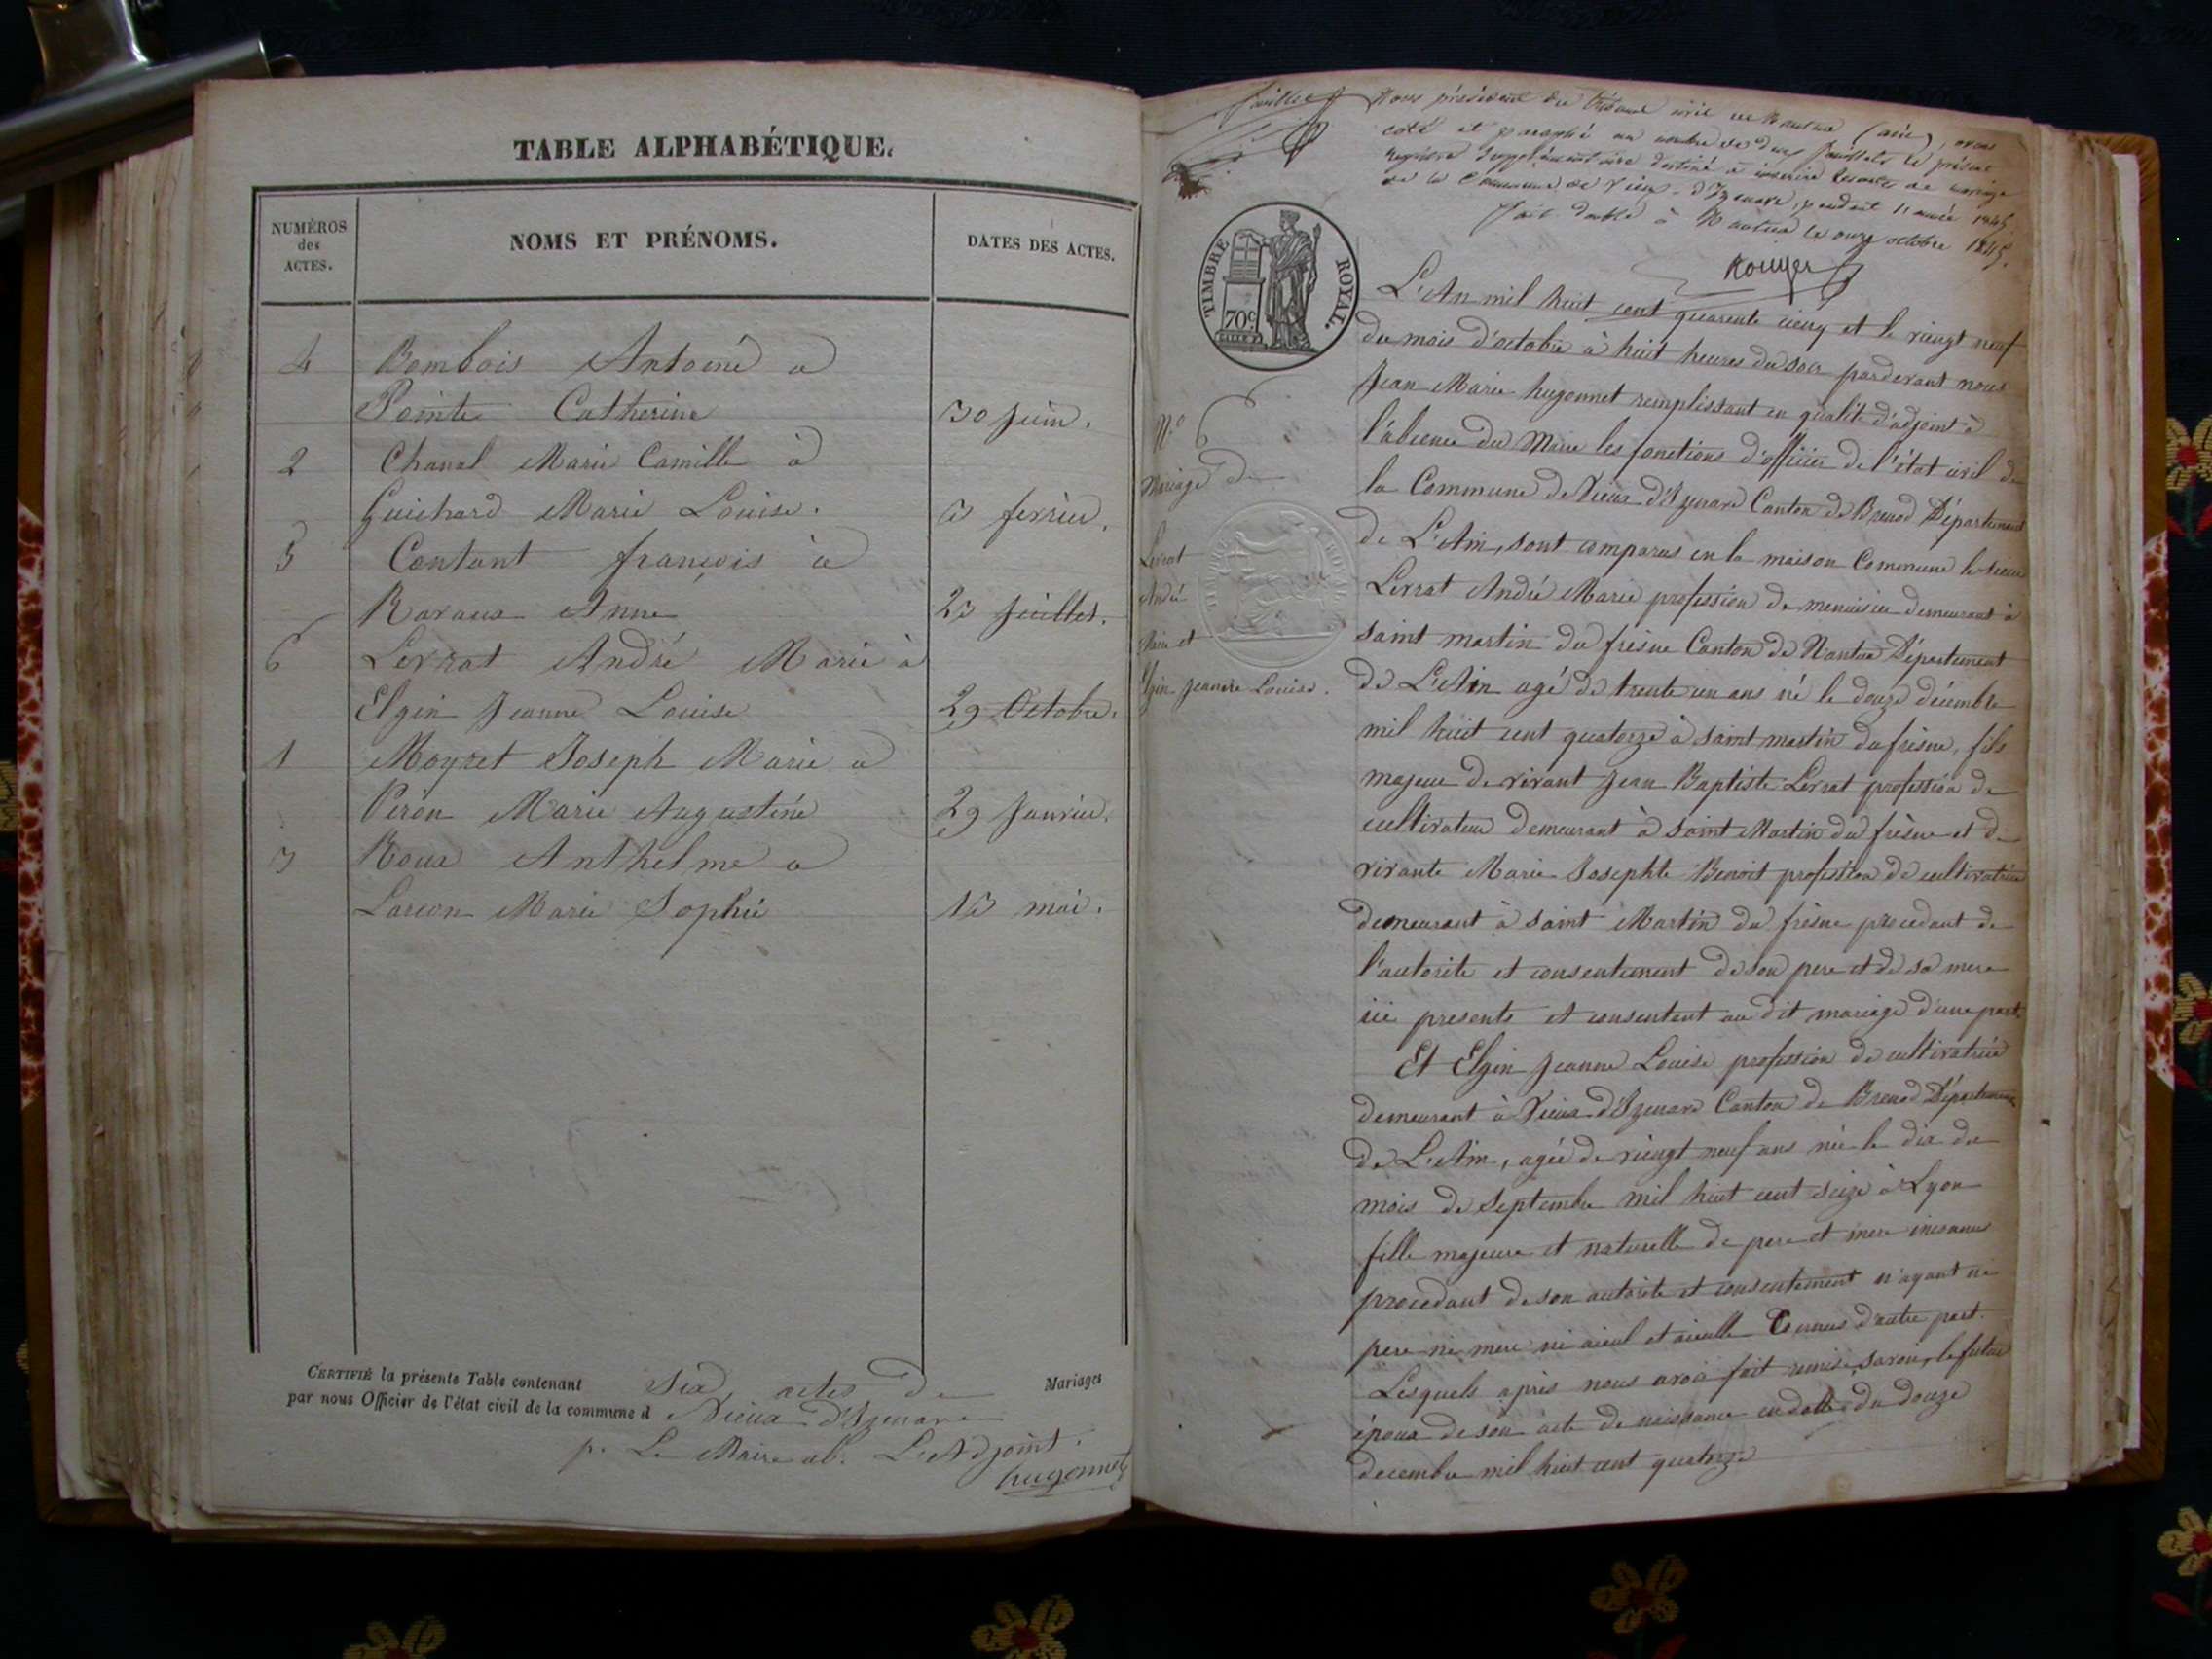 TABLE ALPHABÉTIQUE.
NUMÉROS
des
ACTES.
NOMS ET PRÉNOMS.
DATES DES ACTES.
4 Bombois Antoine a
Pointe Catherine 30 Juin.
2 Chanal Marie Camille à
Guichard Marie Louise. fevrier.
5 Contant françois à
Ravaux Anne 23 Juillet.
6 Levrat André Marie à
Elgin Jeanne Louise 29 Octobre.
1 Moyret Joseph Marie a
Péron Marie Augustine 29 Janvier.
3 Roux Anthelme a
Larcon Marie Sophie mai.
CERTIFIÉ la présente Table contenant Six actes de Mariages
par nous Officier de l'état civil de la commune d Vieux d'Izenave
p. Le Maire ab. L'Adjoint.
hugonnet
feuillet
Nous président du tribunal civil de Nantua (ain), avons
coté et paraphé au nombre de deux feuillets le présent
registre supplémentaire destiné à inscrire les actes de mariage
de la Commune de Vieux-d'Izenave, pendant l'année 1845.
fait double à Nantua le onze octobre 1845.
Rouyer
TIMBRE ROYAL.
70c
L'An mil huit cent quarante cinq et le vingt neuf
du mois d'octobre à huit heures du soir pardevant nous
Jean Marie hugonnet remplissant en qualité d'adjoint à
l'absence du Maire les fonctions d'officier de l'état civil de
la Commune de Vieux d'Izenave Canton de Brenod Département
de L'Ain, sont comparus en la maison Commune le sieur
Levrat André Marie profession de menuisier demeurant à
saint martin du frêsne Canton de Nantua Département
de L'Ain agé de trente un ans né le douze décembre
mil huit cent quatorze à saint martin du frèsne, fils
majeur de vivant Jean Baptiste Levrat profession de
cultivateur demeurant à saint Martin du frèsne et de
vivante Marie Josephte Benoit profession de cultivatrice
demeurant à saint Martin du frèsne procedant de
l'autorite et consentement de son pere et de sa mere
ici presents et consentent au dit mariage d'une part.
Et Elgin Jeanne Louise profession de cultivatrice
demeurant à Vieux d'Izenave Canton de Brenod Département
de L'Ain, agée de vingt neuf ans née le dix du
mois de Septembre mil huit cent seize à Lyon
fille majeure et naturelle de pere et mere inconnus
procedant de son autorite et consentement n'ayant ne
pere ne mere ni aieul et aieulle Connus d'autre part.
Lesquels après nous avoir fait remise, savoir, le futur
époux de son acte de naissance en datte du douze
decembre mil huit cent quatorze
N.° 6
Mariage de
Levrat
André
Marie et
Elgin Jeanne Louise.